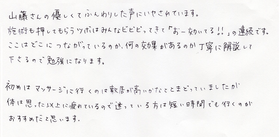 山藤さんの優しくてふんわりした声にいやされています。
施術も押してもらうツボはみんなどこどこってきて「おーっいってる!!」の連続です。
ここはどこにつながっているのか、何の効果があるのか丁寧に解説して
下さるので勉強になります。
初めは マッサージに行くのは敷居が高いかなととまどっていましたが
体は思った以上に疲れているので迷っている方は短い時間でも行くのが
おすすめだと思います。